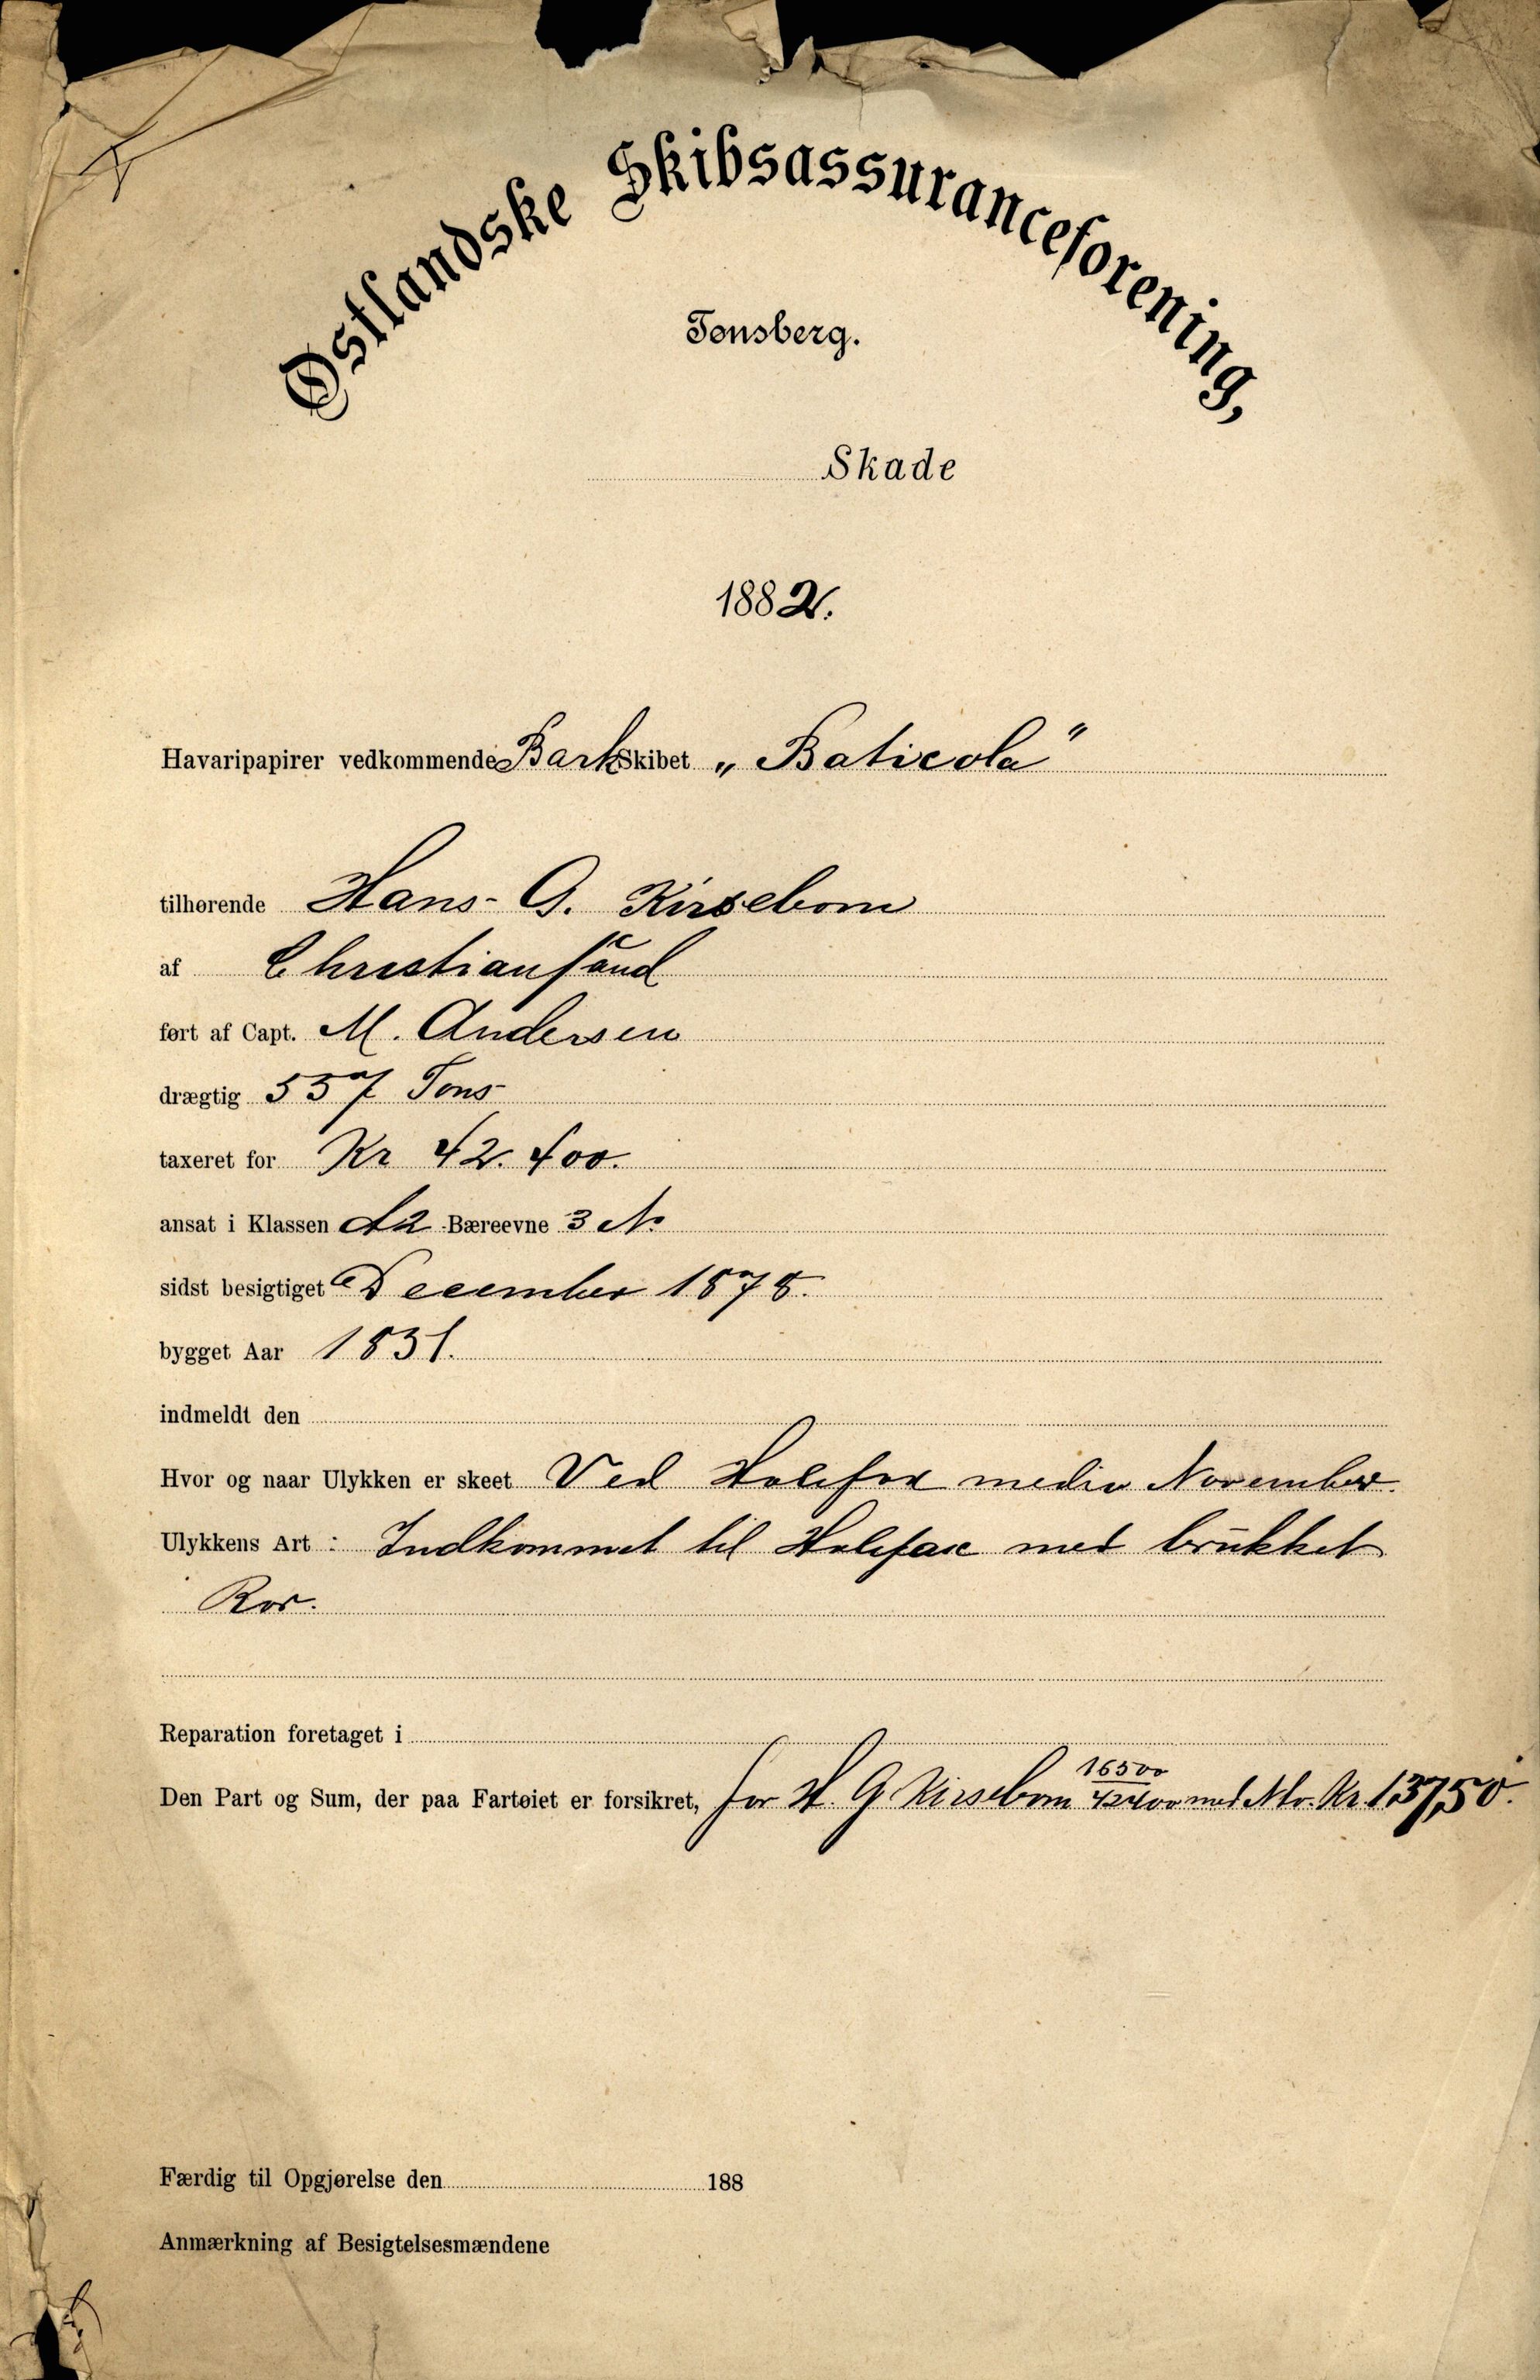 Østlandske Skibsassuranceforening,
Tønsberg.
Skade
1882.
Havaripapirer vedkommende Bark Skibet „Baticola"
tilhørende Hans G. Kirsebom
af Christiansand
ført af Capt. M. Andersen
drægtig 557 Tons
taxeret for Kr 42.400.
ansat i Klassen A2 Bæreevne 3 N.
sidst besigtiget December 1878.
bygget Aar 1851.
indmeldt den
Hvor og naar Ulykken er skeet Ved Halifax medio November.
Ulykkens Art : Indkommet til Halifax med brukket
Ror.
Reparation foretaget i
Den Part og Sum, der paa Fartøiet er forsikret, for H. G. Kirsebom 16500/42400 med Kr. 13750.
Færdig til Opgjørelse den 188
Anmærkning af Besigtelsesmændene